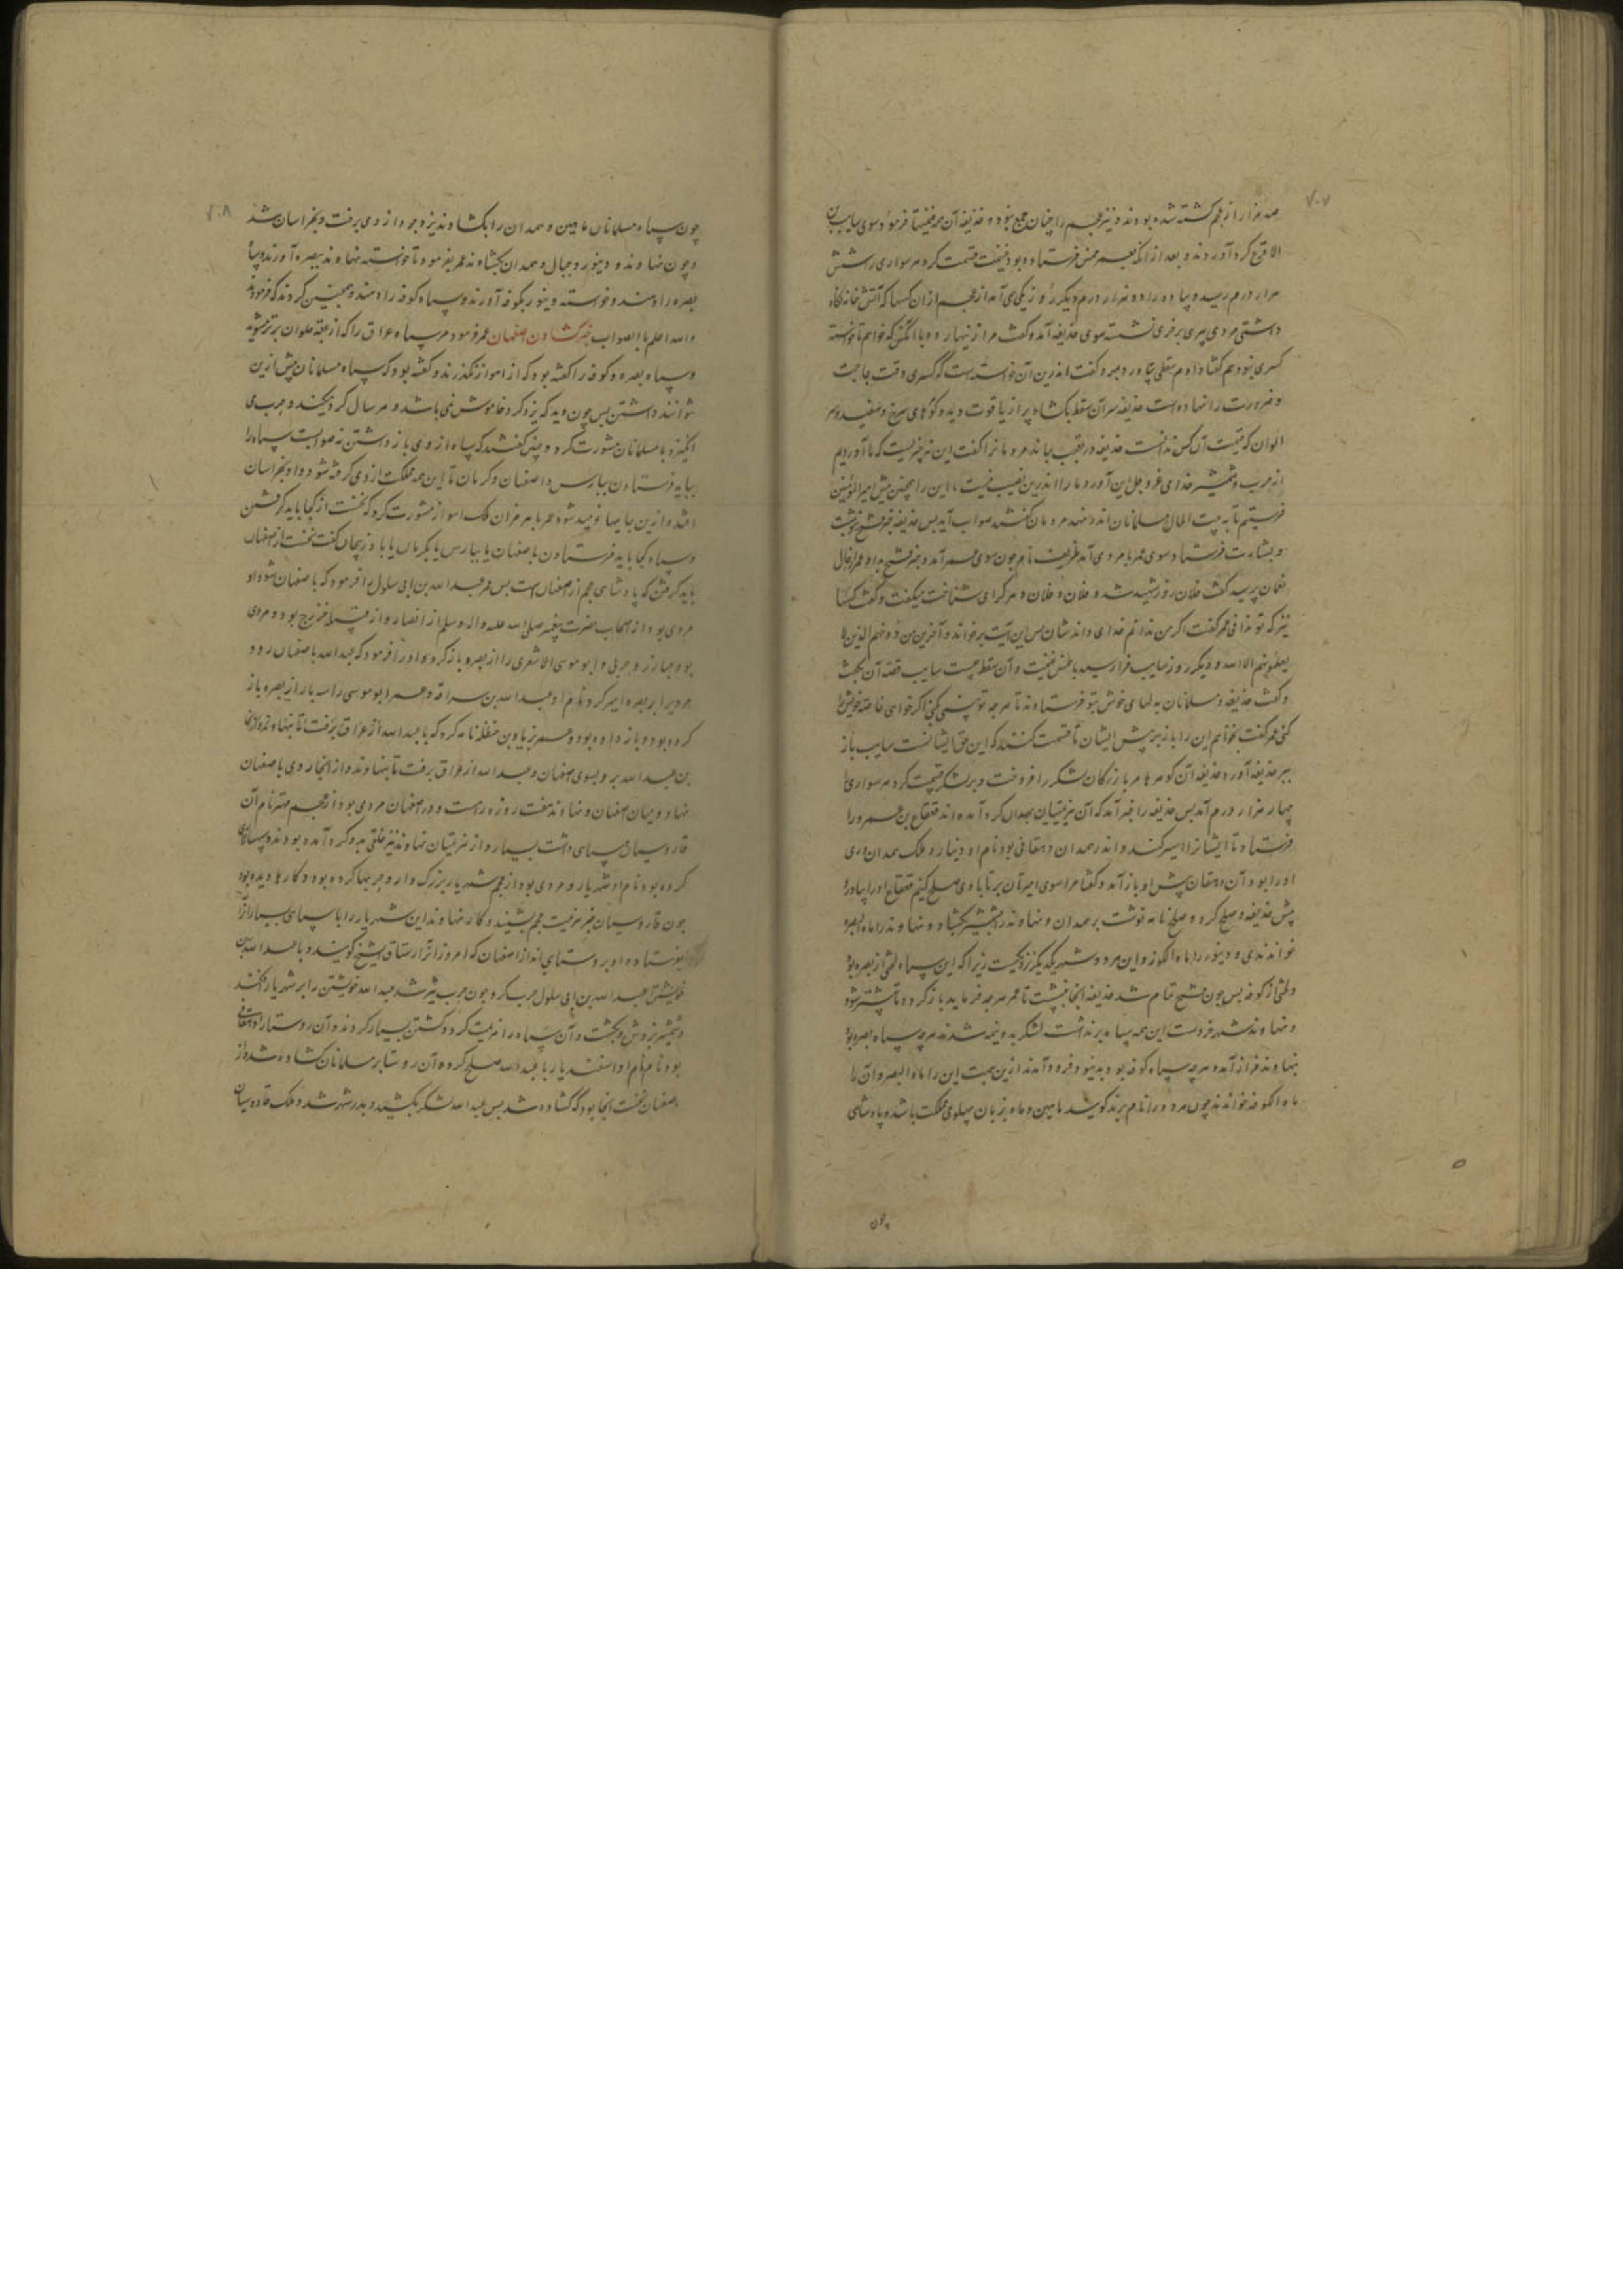 ۷۰۷
صد هزار از عجم کشته شده بودند و نیز عجم را چنان جمع نبود و حذیفه آن همه غنیمتها فرمود سوی سایب بن
الاقرع گرد آوردند و بعد از آنکه بعمر خمس فرستاده بود غنیمت قسمت کرد هر سواری را شش
هزار درم رسید و پیاده را دو هزار درم و دیگر روز یکی می آمد از عجم از آن کسها که آتش خانه نگاه
داشتی مردی پیر بر خری نشسته سوی حذیفه آمد و گفت مرا زنهار ده با آنکس که خواهم تا خواسته
کسری بنودهم گفتا دادم سفطی بیاورد و مهر و گفت اندرین آن خواسته است که کسری وقت حاجت
و ضرورت را نهاده است حذیفه سر آن سفط بگشاد پر از یاقوت دید و گوهای سرخ و سفید و هر
الوان که قیمت آن کس ندانست حذیفه در تعجب بماند مردمانرا گفت این نه چیزیست که ما آوردیم
از حرب و شمشیر خدای عز و جل این آورد ما را اندرین نصیب نیست ما این را همچنین پیش امیر المؤمنین
فرستیم تا به بیت المال مسلمانان اندر نهد مردمان گفتند صواب آید پس حذیفه خبر فتح نوشت
و بشارت فرستاد سوی عمر با مردی آمد طریف نام چون سوی عمر آمد و خبر فتح بداد عمر از حال
نعمان پرسید گفت فلان روز شهید شد و فلان و فلان و هر کرا می شناخت میگفت و گفت کسها
نیز که تو ندانی عمر گفت اگر من ندانم خدای داندشان پس این آیت برخواند و آخرین من دونهم الذین لا
یعلمونهم الا الله و دیگر روز سایب فراز رسید با خمس غنیمت و آن سقط چیست سایب قصه آن بگفت
و گفت حذیفه و مسلمانان به دلهای خوش بتو فرستادند تا هر چه تو بینی کنی اگر خواهی خاصه خویش را
کنی عمر گفت نخواهم این را باز بر پیش ایشان تا قسمت کنند که این حق ایشانست سایب باز
ببر حذیفه آورد حذیفه آن گوهرها هر بازرگان لشکر را فروخت و بر لشکر قسمت کرد هر سواری را
چهار هزار درم آمد پس حذیفه را خبر آمد که آن هزیمتیان بهمدان گرد آمده اند قعقاع بن عمرو را
فرستاد تا ایشانرا اسیر کند و اندر همدان دهقانی بود نام او دینار و ملک همدان وری
او را بود آن دهقان پیش او باز آمد و گفتا مرا سوی امیرتان بر تا با وی صلح کنیم قعقاع او را بیاورد
پیش حذیفه و صلح کرد و صلح نامه نوشت بر همدان و نهاوند را بشمشیر بگشاد و نهاوند را ماه البصره
خواندندی و دینور را ماه الکوفه و این هر دو شهر یکدیگر نزدیکست زیرا که این سپاه لختی از بصره بود
و لختی از کوفه پس چون فتح تمام شد حذیفه آنجا بنشست تا عمر هر چه فرماید باز گردد تا پیشتر شود
و نهاوند شهر خردست این همه سپاه برنداشت لشکر بدو نیمه شدند هر چه سپاه بصره بود
بنهاوند فراز آمد و هر چه سپاه کوفه بود بدینور فرود آمدند ازین جهت این را ماه البصر و آن را
ماه الکوفه خوانند چون هر دو را نام برند گویند ماهین و ماه بزبان پهلوی مملکت باشد و پادشاهی
چون
۷۰۸
چون سپاه مسلمانان ماهین و همدان را بگشادند یزدجرد از ری برفت و بخراسان شد
و چون نهاوند و دینور و جبال و همدان بگشادند عمر بفرمود تا خواسته نهاوند ببصره آورند و سپاه
بصره را دهند و خواسته دینور بکوفه آورند و سپاه کوفه را دهند و همچنین کردند که فرمود
والله اعلم بالصواب خبر گشادن اصفهان عمر فرمود مر سپاه عراق را که از عقبه حلوان برتر مشوید
و سپاه بصره و کوفه را گفته بود که از اهواز نگذرند و گفته بود که سپاه مسلمانان پیش ازین
نتوانند داشتن پس چون دید که یزدگرد خاموش نمی باشد و هر سال گرد میکند و حرب می
انگیزد با مسلمانان مشورت کرد و چنین گفتند که سپاه از وی باز داشتن نه صوابست سپاه را
بباید فرستادن بپارس و اصفهان و کرمان تا این همه مملکت از وی گرفته شود و او بخراسان
افتد و ازین جایها نومید شود عمر با هرمزان ملک اهواز مشورت کرد که نخست از کجا باید گرفتن
و سپاه کجا باید فرستادن باصفهان یا بپارس یا بکرمان یا باذربیجان گفت نخست از اصفهان
باید گرفتن که پادشاهی عجم از اصفهان است پس عمر عبد الله بن ابی سلول را فرمود که باصفهان شود او
مردی بود از اصحاب حضرت پیغمبر صلی الله علیه واله وسلم از انصار و از قبیله خزرج بود و مردی
بود مبارز و حربی و ابو موسی الاشعری را از بصره باز کرد و او را فرمود که عبد الله باصفهان رود
بصره امیر کرد نام او عبد الله بن سراقه و عمر ابو موسی را سه بار از بصره باز
کرده بود و باز داده بود و عمر بزیاد بن حنظله نامه کرد که با عبد الله از عراق برفت تا بنهاوند و از آنجا
بن عبد الله بر و بسوی اصفهان و عبد الله از عراق برفت تا بنهاوند و از آنجا روی باصفهان
نهاد و میان اصفهان و نهاوند هفت روزه راهست و در اصفهان مردی بود از عجم مهتر نام آن
فادوسپان سپاهی داشت بسیار و از هزیمتیان نهاوند نیز خلقی بدو گرد آمده بودند و سپهسالاری
کرده بود نام او شهریار و مردی بود از عجم شهریار بزرگ وار و حربها کرده بود و کارها دیده بود
چون فادوسپان خبر هزیمت عجم بشنید و کار نهاوند این شهریار را با سپاهی بسیار از آنجا
بفرستاد و او بروستای اندر از اصفهان که امروز آنرا رستاق الشیخ گویند و با عبد الله بن
خویشتن عبد الله بن ابی سلول حرب کرد و چون حرب تیز شد عبد الله خویشتن را بر شهریار افکند
و شمشیر بزدش و بکشت و آن سپاه را هزیمت کرد و کشتن بسیار کردند و آن روستا را دهقانی
بود نام او اسفندیار با عبد الله صلح کرد و آن روستا بر مسلمانان گشاده شد و از
اصفهان نخست آنجا بود که گشاده شد پس عبد الله لشکر بکشید و بدر شهر شد و ملک فادوسپان